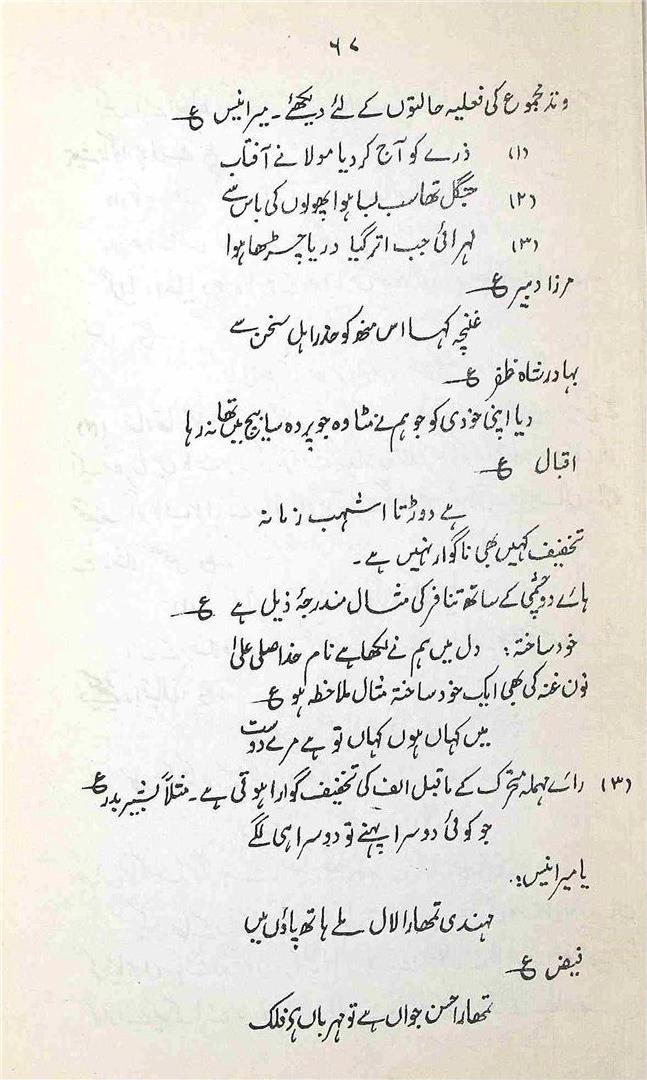 ۶۷
وتد مجموع کی فعلیہ حالتوں کے لئے دیکھئے۔ میر انیس ع
(۱) ذرے کو آج کر دیا مولا نے آفتاب
(۲) جنگل تھا سب بسا ہوا پھولوں کی باس سے
(۳) لہرائی جب اتر گیا دریا چڑھا ہوا
مرزا دبیر ع
غنچہ کہا اس منھ کو حذر اہل سخن سے
بہادر شاہ ظفر ع
دیا اپنی خودی کو جو ہم نے مٹا وہ جو پردہ سا بیچ میں تھا نہ رہا
اقبال ع
ہے دوڑتا اشہب زمانہ
تخفیف کہیں بھی ناگوار نہیں ہے۔
ہائے دوچشمی کے ساتھ تنافر کی مثال مندرجۂ ذیل ہے ع
خود ساختہ: دل میں ہم نے لکھا ہے نام خدا صلی علیٰ
نون غنہ کی بھی ایک خود ساختہ مثال ملاحظہ ہو ع
میں کہاں ہوں کہاں تو ہے مرے دوست
(۳) رائے مہملہ متحرک کے ماقبل الف کی تخفیف گوارا ہوتی ہے۔ مثلاً بشیر بدر ع
جو کوئی دوسرا پہنے تو دوسرا ہی لگے
یا میر انیس:
مہندی تمھارا لال ملے ہاتھ پاؤں میں
فیض ع
تمھارا حسن جواں ہے تو مہرباں ہے فلک